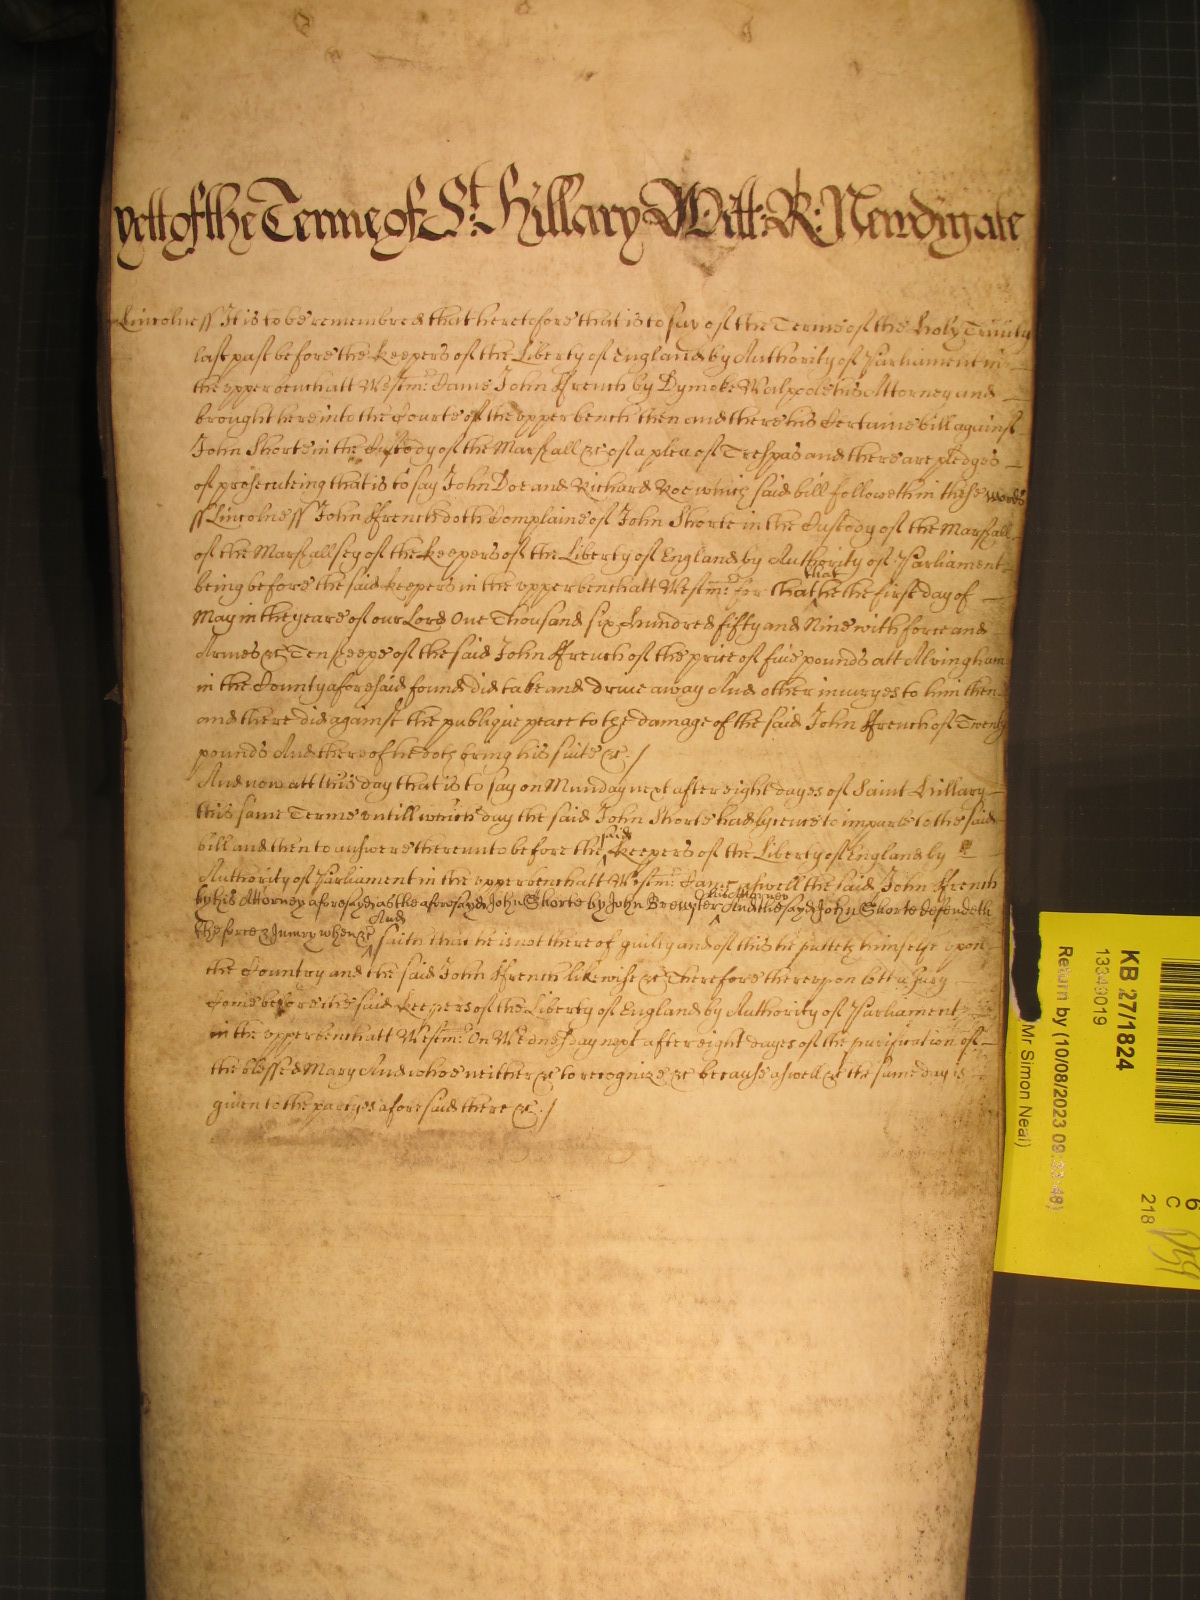 yett of the Terme of St. Hillary Witt: R: Newdigate
Lincolne ss It is to be remembred that heretofore that is to say of the Terme of the holy Trinity
last past before the keepers of the Liberty of England by Authority of Parliament in
the upper bench att Westmr: Came John Ffrench by Dymoke Walpole his Attorney and
brought here into the Courte of the upper bench then and there his Certaine bill against
John Shorte in the Custody of the Marshall &c of a plea of Trespas and there are pledges
of prosecuteing that is to say John Doe and Richard Roe which said bill followeth in these words
ss Lincolne ss John Ffrench doth Complaine of John Shorte in the Custody of the Marshall
of the Marshallsey of the keepers of the Liberty of England by Authority of Parliament
being before the said keepers in the upper bench att Westmr: for that
that
he the first day of
May in the yeare of our Lord One Thousand six hundred fifty and Nine with force and
Armes &c Ten sheepe of the said John Ffrench of the price of five pounds att Alvingham
in the County aforesaid found did take and drive away And other injuryes to him then
and there did against the publique peace to the damage of the said John Ffrench of Twenty
pounds And thereof he doth bring his suite &c./
And now att this day that is to say on Munday next after eight dayes of Saint Hillary
this same Terme untill which day the said John Shorte had lycence to imparle to the said
bill and then to answere thereunto before the said keepers of the Liberty of England by
Authority of Parliament in the upper bench att Westmr: Came aswell the said John Ffrench
by his Attorney aforesayd as the aforesayd John Shorte by John Brewster his Attorney And the sayd John Shorte defendeth
the force & Injury when &c And saith that he is not thereof guilty and of this he putteth himselfe upon
the Country and the said John Ffrench likewise &c Therefore thereupon lett a Jury
Come before the said keepers of the Liberty of England by Authority of Parliament
in the upper bench att Westmr: On Wednesday next after eight dayes of the purification of
the blessed Mary And who neither &c to recognize &c because aswell &c the same day is
given to the partyes aforesaid there &c./
KB 27/1824
13349019
Return by (10/08/2023 09:33:48)
(Mr Simon Neal)
6
C
218